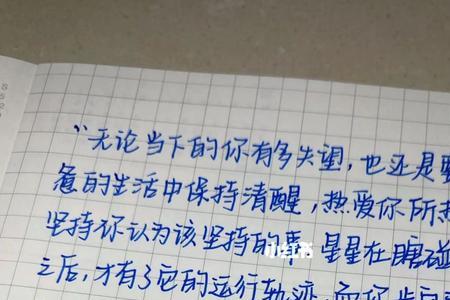 “无论当下的你有多失望，也还是要
惫的生活中保持清醒，热爱你所热
坚持你认为该坚持的事 星星在瞎碰
之后，才有了它的运行轨迹 而你
小红书